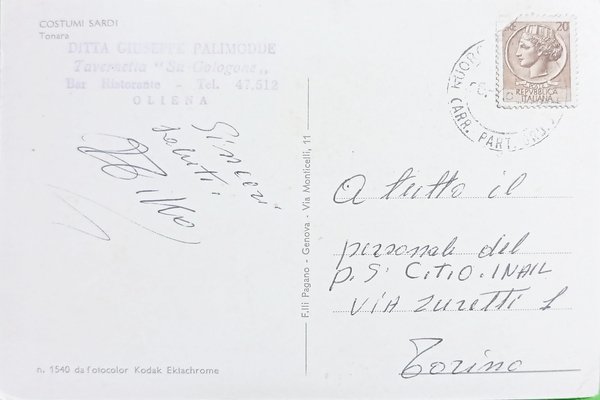 COSTUMI SARDI
Tonara
DITTA GIUSEPPE PALIMODDE
Tavernetta "Su Gologone"
Bar Ristorante - Tel. 47.512
OLIENA
Sinceri
saluti
F.lli Pagano - Genova - Via Monticelli, 11
20
REPVBBLICA
ITALIANA
NUORO
CARR. PART.
A tutto il
personale del
p.S. CTO.INAIL
VIA ZURETTI
Torino
n. 1540 da fotocolor Kodak Ektachrome